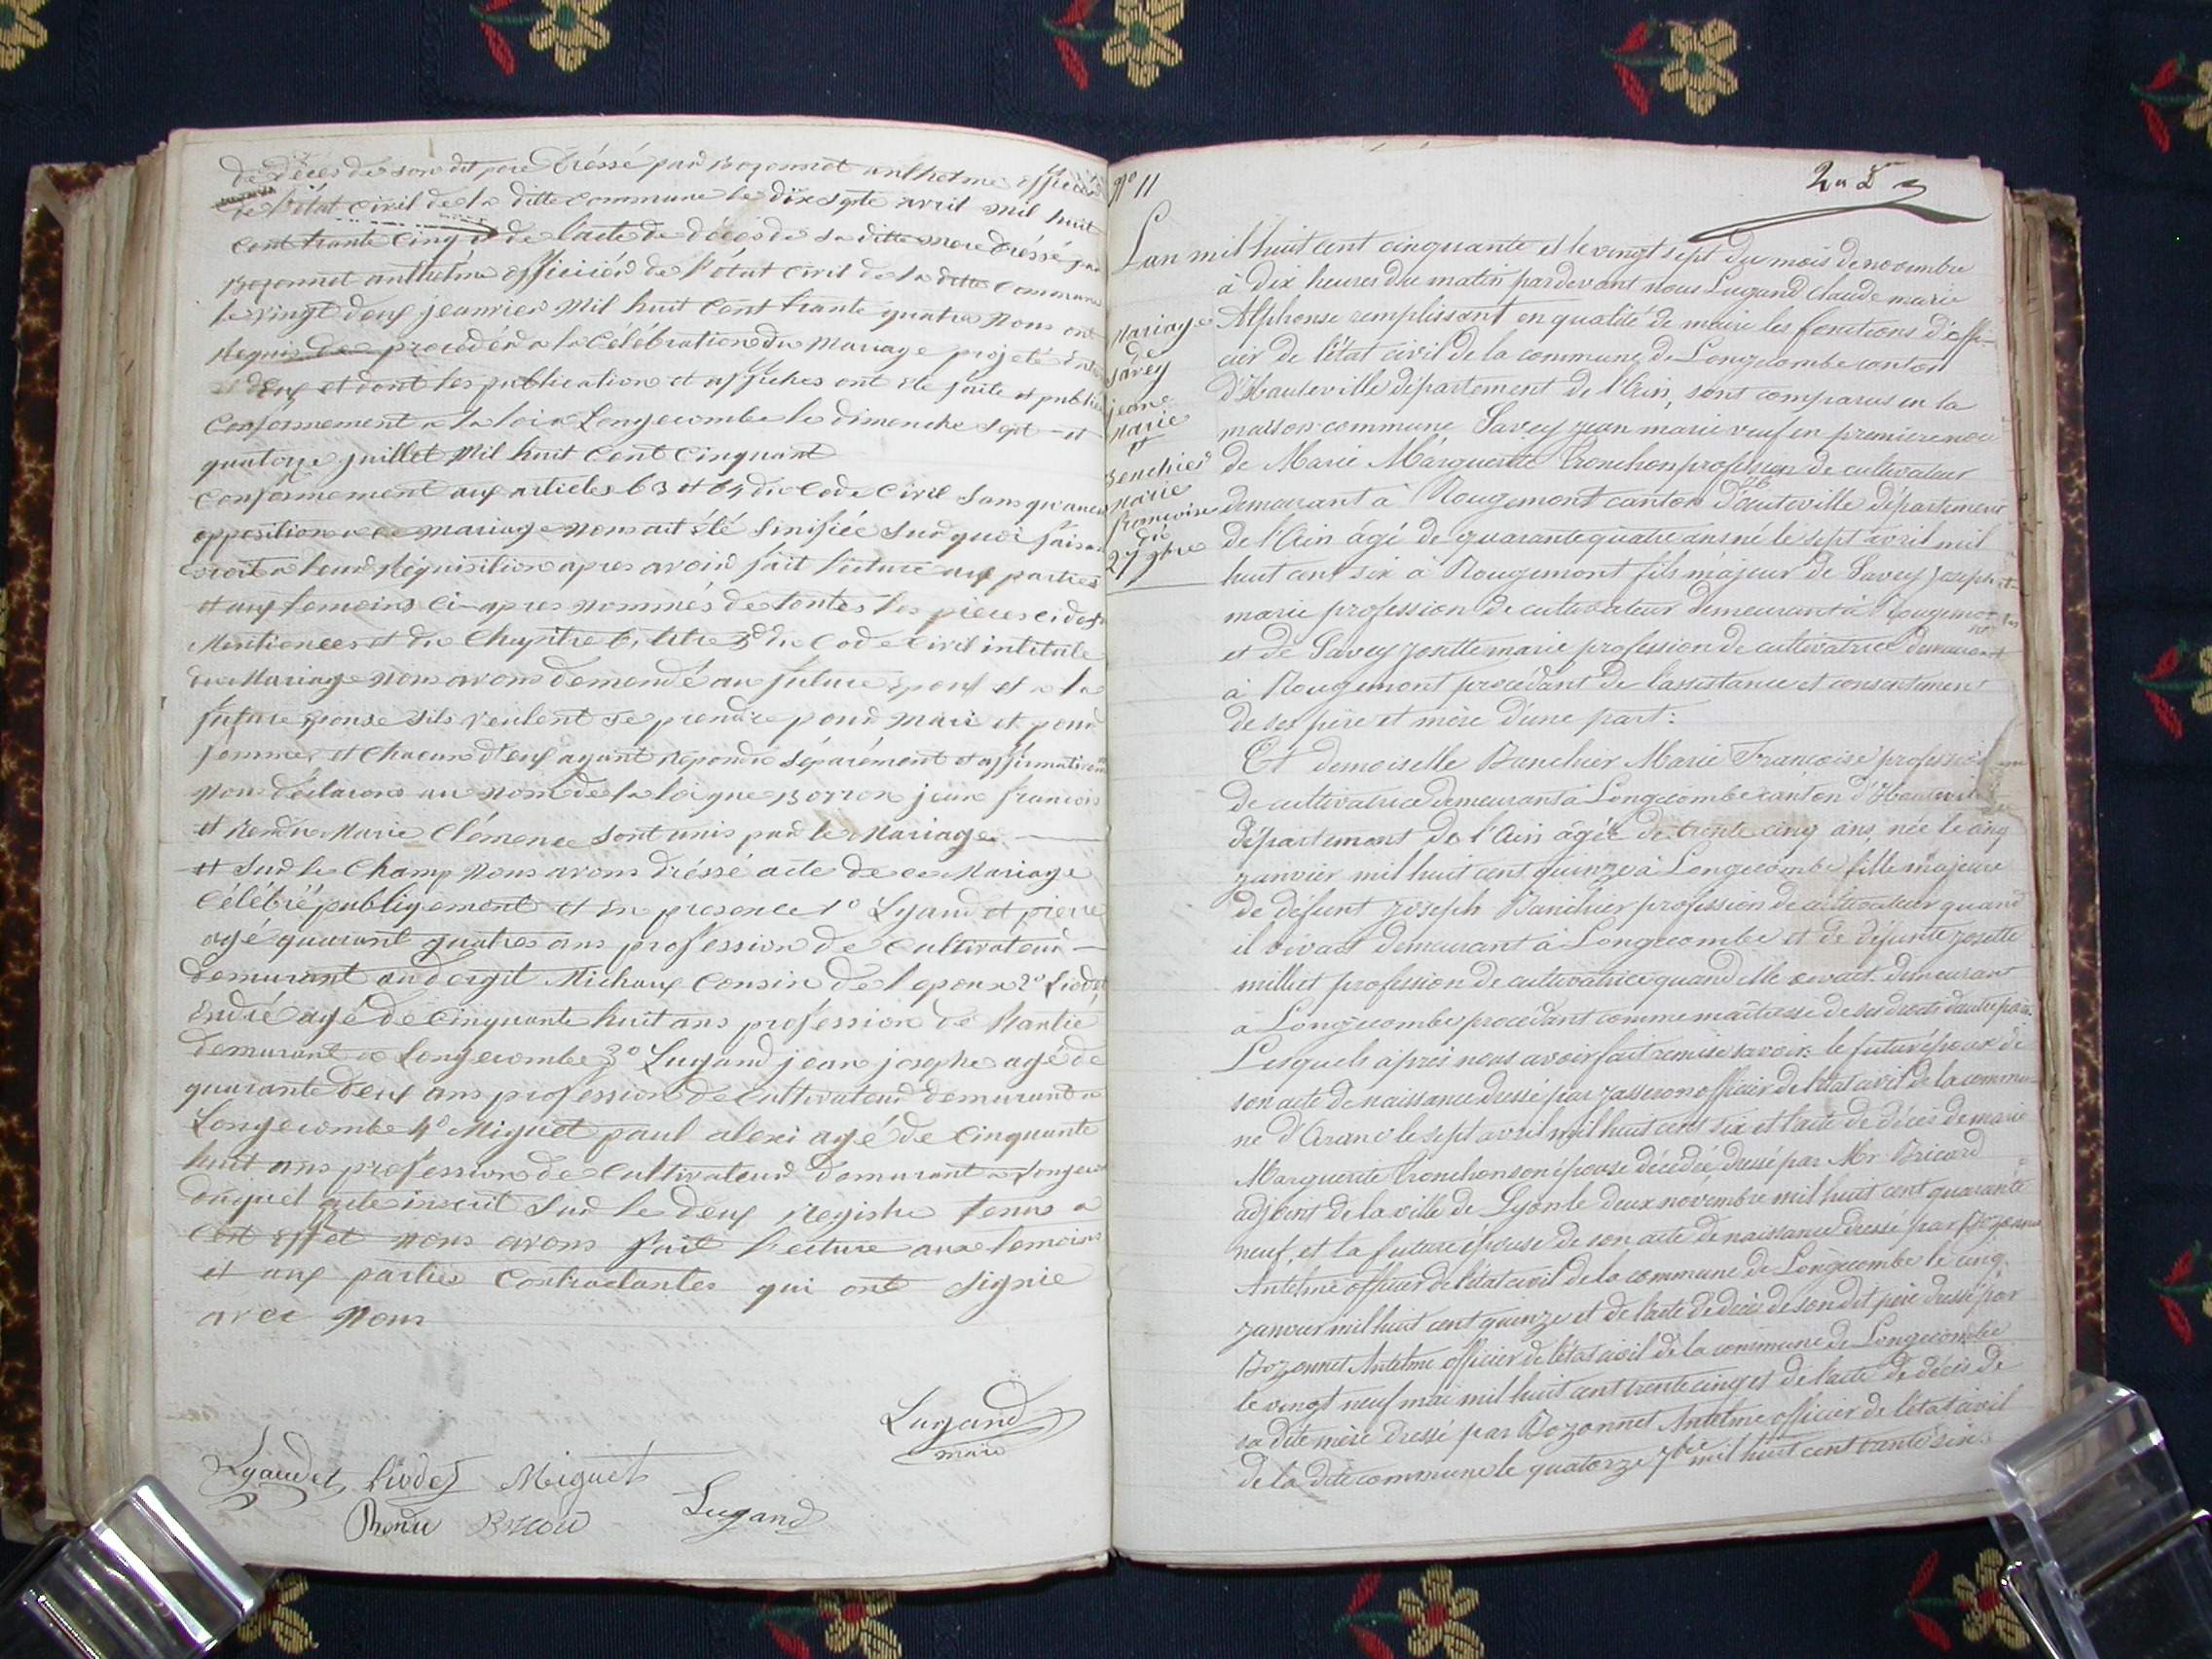 de décès de son dit père dréssé par Bozonnet anthelme officier
de l'état civil de la ditte commune le dix septe avril mil huit
cent trante cinq et de l'acte de décès de sa ditte mere dréssé par
Bozonnet anthelme officiér de l'état civil de la ditte commune
le vingt deux jeanvier mil huit cent trante quatre nous ont
requis de procéder a la célébration du mariage projeté entre
eux et dont les publication et affiches ont été faite et publiée
conformement a la loi a Longecombe le dimenche sept et
quatorze juillet mil huit cent cinquant
conformement aux articles 63 et 64 du code civil sans qu'aucune
opposition a ce mariage nous ait été sinifiée sur quoi faisant
droit a leur réquisition apres avoir fait lecture aux parties
et aux temoins ci-apres nommés de toutes les pièces cidessus
mentionées et du chapitre 6, titre 5 du code civil intitulé
du mariage nous avons demendé au future epoux et a la
future epouse s'ils veulent se prendre pour mari et pour
femme, et chacun d'eux ayant repondu séparément et affirmativement
nous déclarons au nom de la loi que Borron jean francois
et Rendu Marie Clémence sont unis par le mariage.
et sur le champ nous avons dréssé acte de ce mariage
célébré publiqement et en presence 1º Lyaudet pierre
agé quarant quatres ans profession de cultivateur
demurant au dergit Michaux cousin de l'epoux 2º Liodet
André agé de cinquante huit ans profession de Rantié
demurant a Longecombe 3º Lugand jean josephe agé de
quarante deux ans profession de cultivateur demurant a
Longecombe 4º Miguet paul alexi agé de cinquante
huit ans profession de cultivateur demurant a Longec
duquel acte inscrit sur le deux registre tenus a
cet effet nous avons fait lecture aux temoins
et aux parties contractantes qui ont signié
avec nous
Lugand
maire
Lyaudet Liodet Miguet
Rendu Lugand
Nº 11
Mariage
de
Savey
jean
Marie
et
Benchier
Marie
françoise
du
27 9bre
Lan mil huit cent cinquante et le vingt sept du mois de novembre
à dix heures du matin pardevant nous Lugand Claude marie
Alphonse remplissant en qualité de maire les fonctions d'offi-
cier de l'état civil de la commune de Longecombe canton
d'Hauteville département de l'Ain, sont comparus en la
maison commune Savey jean marie veuf en premiere noce
de Marie Marguerite Tronchon profession de cultivateur
demeurant à Rougemont canton d'hauteville département
de l'Ain âgé de quarante quatre ans né le sept avril mil
huit cent six à Rougemont fils majeur de Savey joseph
marie profession de cultivateur demeurant à Rougemont
et de Savey josette marie profession de cultivatrice demeurant
à Rougemont procédant de l'assistance et consentement
de ses père et mère d'une part:
Et demoiselle Banchier Marie Françoise profession
de cultivatrice demeurant à Longecombe canton d'Hauteville
département de l'Ain âgée de trente cinq ans, née le cinq
janvier mil huit cent quinze à Longecombe fille majeure
de défunt joseph Banchier profession de cultivateur quand
il vivait demeurant à Longecombe et de défunte josette
milliet profession de cultivatrice quand elle vivait demeurant
a Longecombe procédant comme maitresse de ses droits dautre part.
Lesquels après nous avoir fait remise savoir: le futur époux de
son acte de naissance dressé par Jasseron officier de l'état civil de la commu-
ne d'Aranc le sept avril mil huit cent six et l'acte de décès de marie
Marguerite Tronchon son épouse décédée, dressé par Mr Bricard
adjoint de la ville de Lyon le deux novembre mil huit cent quarante
neuf, et la future épouse de son acte de naissance dressé par Bozonnet
Antelme officier de l'état civil de la commune de Longecombe le cinq
janvier mil huit cent quinze et de l'acte de décès de son dit père dressé par
Bozonnet Antelme officier de l'état civil de la commune de Longecombe
le vingt neuf mai mil huit cent trente cinq et de l'acte de décès de
sa dite mère dressé par Bozonnet Antelme officier de l'état civil
de la dite commune le quatorze 7bre mil huit cent trante six.